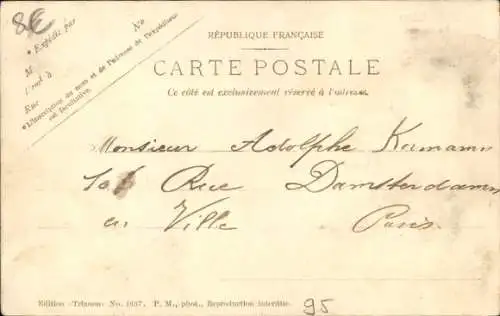 8€
RÉPUBLIQUE FRANÇAISE
CARTE POSTALE
Ce côté est exclusivement réservé à l'adresse.
* Expédié par
M
Rue
No
*L'inscription du nom et de l'adresse de l'expéditeur
est facultative.
Monsieur Adolphe Kamann
Rue Damsterdam
en Ville Paris
Edition «Trianon» No. 1037. P. M., phot., Reproduction interdite.
95